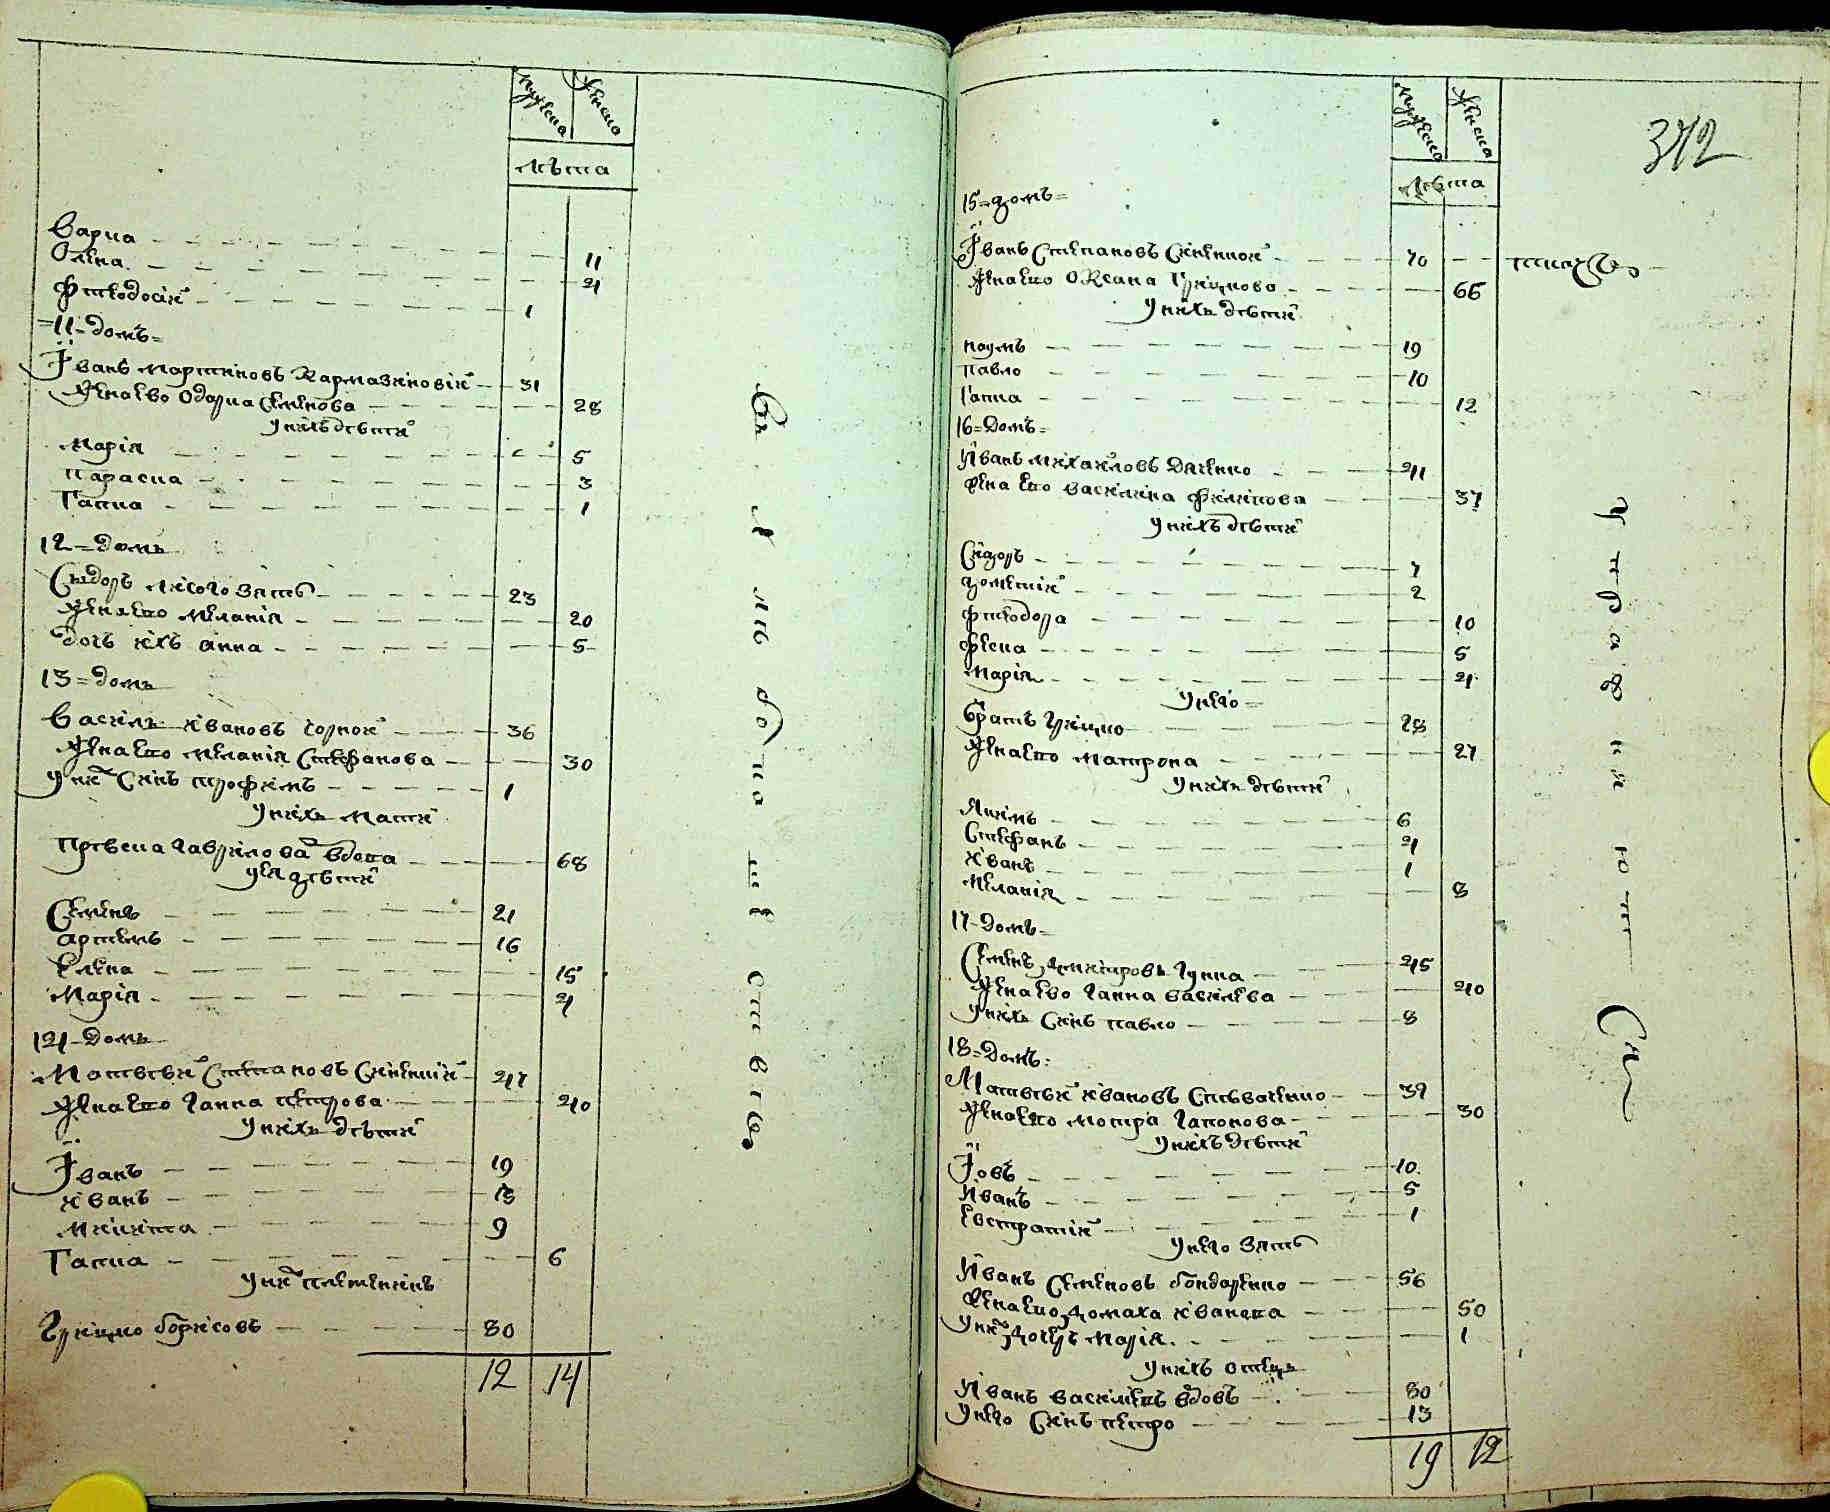 мужеска женска
лѣта
варка 11
Олена 4
Фтеодосій 1
=11=домъ=
Їванъ мартиновъ Кармазиновій 31
Жена его Одарка семенова 28
У нихъ дѣтей
Марія 5
Параска 3
Гапка 1
12=домъ
Сидоръ лисого зять 23
Жена его Меланія 20
дочь ихъ анна 5
13=домъ
Василь ивановъ чорной 36
Жена его меланія Стефанова 30
У ней Синъ трофимъ 1
У нихъ Мати
Пріська гаврилова вдова 68
У ея дѣтей
Семенъ 21
артемъ 16
Елена 15
Марія 4
14=домъ
Матвѣй Степановъ Синенкій 47
Жена его ганна петрова 40
У нихъ дѣтей
Їванъ 19
иванъ 13
Микита 9
Гапка 6
У ней племеникъ
грицко борисовъ 80
12 14
мужеска женска
лѣта
312
15=домъ=
Їванъ Степановъ Синенкой 70
Жена его Оксана Грицкова 66
У нихъ дѣтей
наумъ 19
павло 10
Гапка 12
16=домъ=
Иванъ михайловъ Даценко 41
Жена его василина филипова 37
У нихъ дѣтей
Сидоръ 7
дометій 2
фтеодора 10
фенка 5
Марія 4
У него=
братъ грицко 28
Жена его Матрона 27
У нихъ дѣтей
Якимъ 6
Стефанъ 4
иванъ 1
Меланія 8
17=домъ=
Семенъ дмитровъ гунка 45
Жена его ганна василева 40
У нихъ Синъ павло 8
18=домъ:
Матвѣй ивановъ Спѣваченко 39
Жена его мотра гапонова 30
У нихъ дѣтей
Їовъ 10
Иванъ 5
Евстратій 1
У него зять
Иванъ Семеновъ бондаренко 56
Жена его домаха иванова 50
У ней дочерь Марія 1
У нихъ отецъ
Иванъ василіевъ вдовъ 80
У него Синъ петро 13
19 12